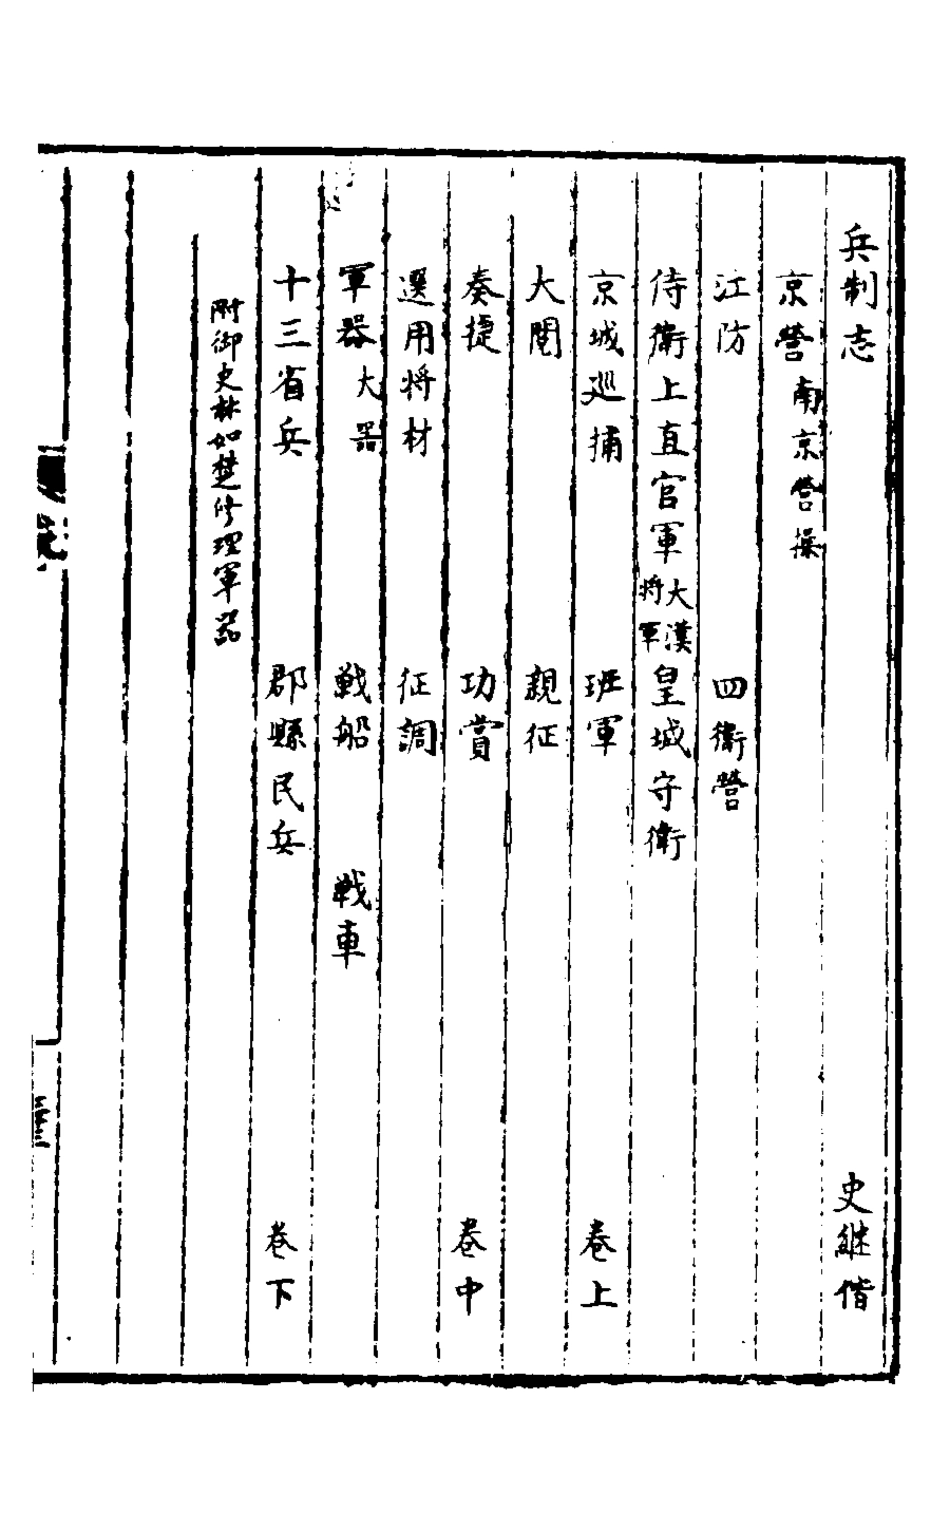 兵制志 史継偕
京營 南京營操
江防 四衛營
侍衛上直官軍 大漢將軍 皇城守衛
京城巡捕 班軍 卷上
大閱 親征
奏捷 功賞 卷中
選用將材 征調
軍器 大器 戦船 戦車
十三省兵 郡縣民兵 卷下
附御史林如楚修理軍器